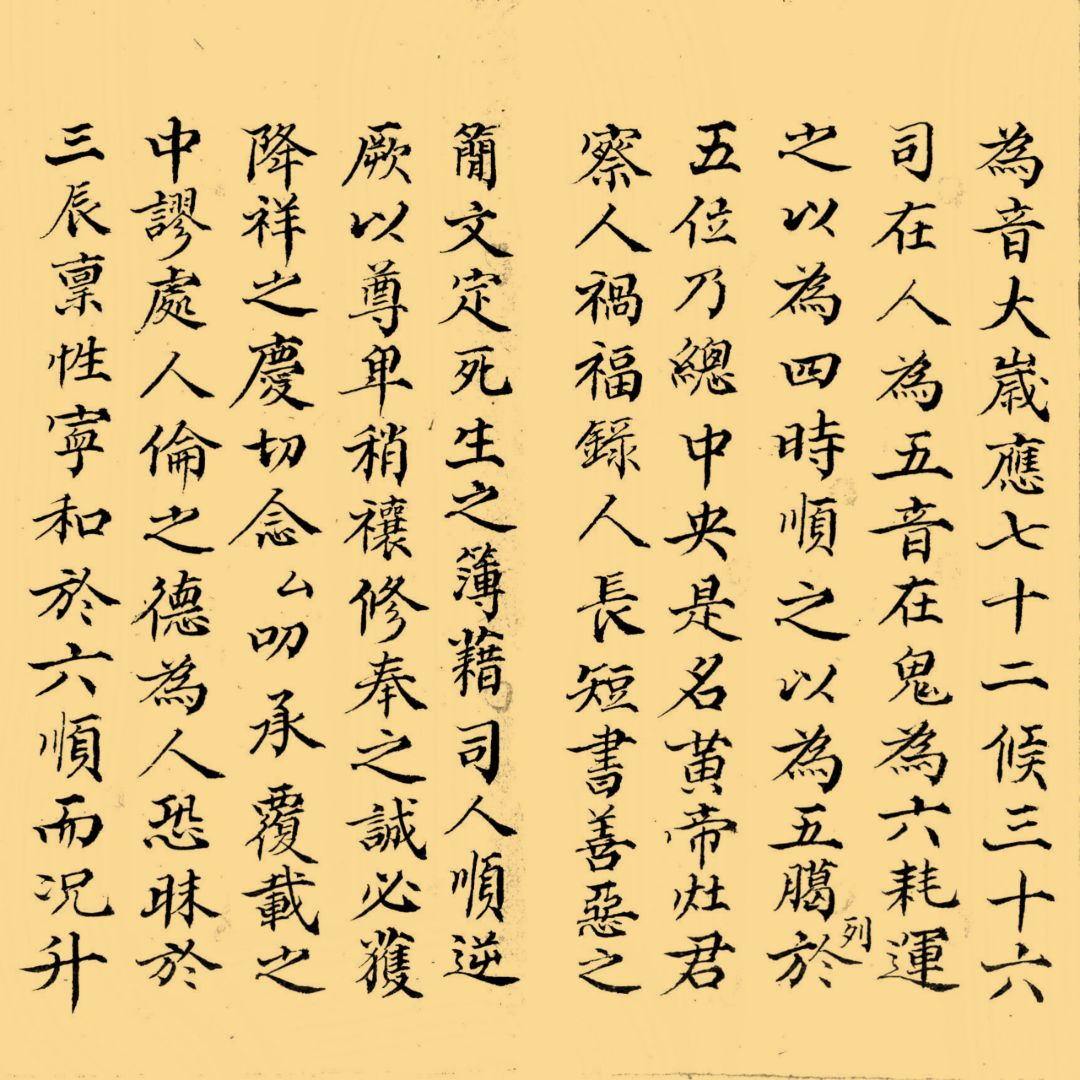 為音大嵗應七十二候三十六
司在人為五音在鬼為六耗運
之以為四時順之以為五臈列於
五位乃總中央是名黃帝灶君
察人禍福錄人長短書善惡之
簡文定死生之簿藉司人順逆
厥以尊卑稍禳修奉之誠必獲
降祥之慶切念厶叨承覆載之
中謬處人倫之德為人恐昧於
三辰稟性寜和於六順而况升